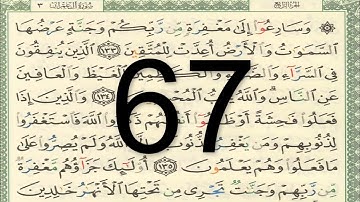 الجزء الرابع سورة آل عمران ٣
وَسَارِعُوٓا۟ إِلَىٰ مَغْفِرَةٍ مِّن رَّبِّكُمْ وَجَنَّةٍ عَرْضُهَا
ٱلسَّمَٰوَٰتُ وَٱلْأَرْضُ أُعِدَّتْ لِلْمُتَّقِينَ ١٣٣ ٱلَّذِينَ يُنفِقُونَ
فِى ٱلسَّرَّآءِ وَٱلضَّرَّآءِ وَٱلْكَٰظِمِينَ ٱلْغَيْظَ وَٱلْعَافِينَ
عَنِ ٱلنَّاسِ وَٱللَّهُ يُحِبُّ ١٣٤ وَٱلَّذِينَ إِذَا
فَعَلُوا۟ فَٰحِشَةً ذَكَرُوا۟ ٱللَّهَ فَٱسْتَغْفَرُوا۟
لِذُنُوبِهِمْ وَلَمْ يُصِرُّوا۟ عَلَىٰ
مَا فَعَلُوا۟ وَهُمْ يَعْلَمُونَ ١٣٥ أُو۟لَٰٓئِكَ جَزَآؤُهُم مَّغْفِرَةٌ
مِّن رَّبِّهِمْ وَجَنَّٰتٌ تَجْرِى مِن تَحْتِهَا ٱلْأَنْهَٰرُ خَٰلِدِينَ
67